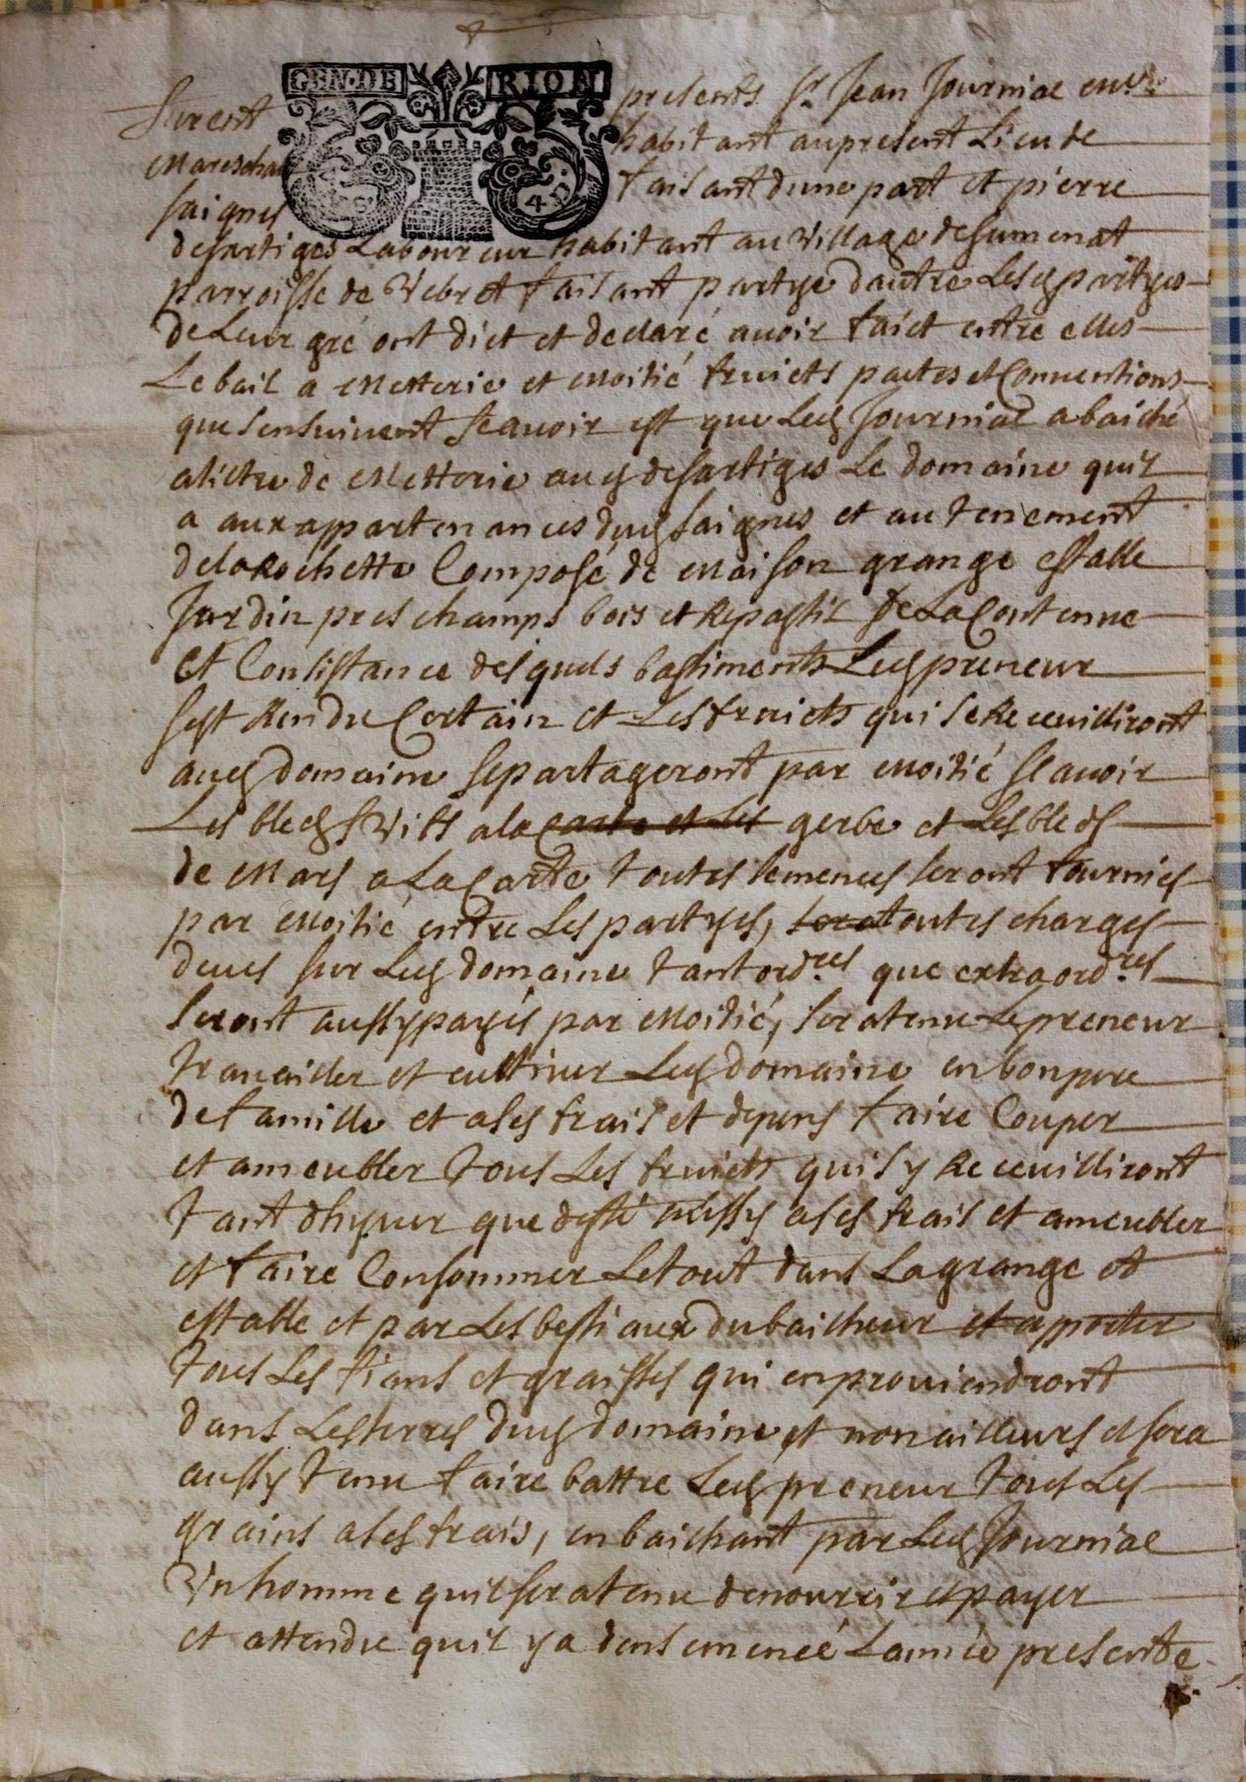 GEN·DE RIOM
4D
furent presents Sr Jean Journiac
Mareschal habitant au present Lieu de
saignes faisant dune part et pierre
desartiges Laboureur habitant au Village de sumenat
parroisse de Vebret faisant partye dautre Lesq partyes
de Leur gré ont dict et declaré avoir faict entre elles
Le bail a Metterie et Moitié fruicts pactes et Conventions
que sensuivent scavoir est que Led Journiac a baiché
a tictre de Metterie aud desartiges Le domaine quil
a aux appartenances dud saignes et au tenement
de la Rochette Composé de Maison grange estable
Jardin pres champs bois et Repastil de La Contenue
et Consistance desquels bastiments Led preneur
sest Rendu Certain et Les fruicts qui se Receuilliront
aud domaine se partageront par Moitié scavoir
Les bleds Vifs a la Carte et Les gerbe et Les bleds
de Mars a La Carte toutes semences seront fournies
par Moitié entre Les partyes, sera toutes charges
deues sur Led domaine tant ordres que extraordres
seront aussy payés par Moitié, sera tenu Le preneur
travailler et cultiver Led domaine en bon pere
de famille et a ses frais et depens faire Couper
et ameubler tous Les fruicts qui sy Receuilliront
tant dhyver que desté aussy a ses frais et ameubler
et faire Consommer Le tout dans La grange et
estable et par Les bestiaux du baicheur et apporter
tous Les fians et graisses qui en proviendront
dans Les terres dud domaine et non ailleurs et sera
aussy tenu faire battre Led preneur tous Les
grains a ses frais, en baichant par Led Journiac
Un homme quil sera tenu de nourrir et payer
et attendu quil y a densemencé Lannée presente